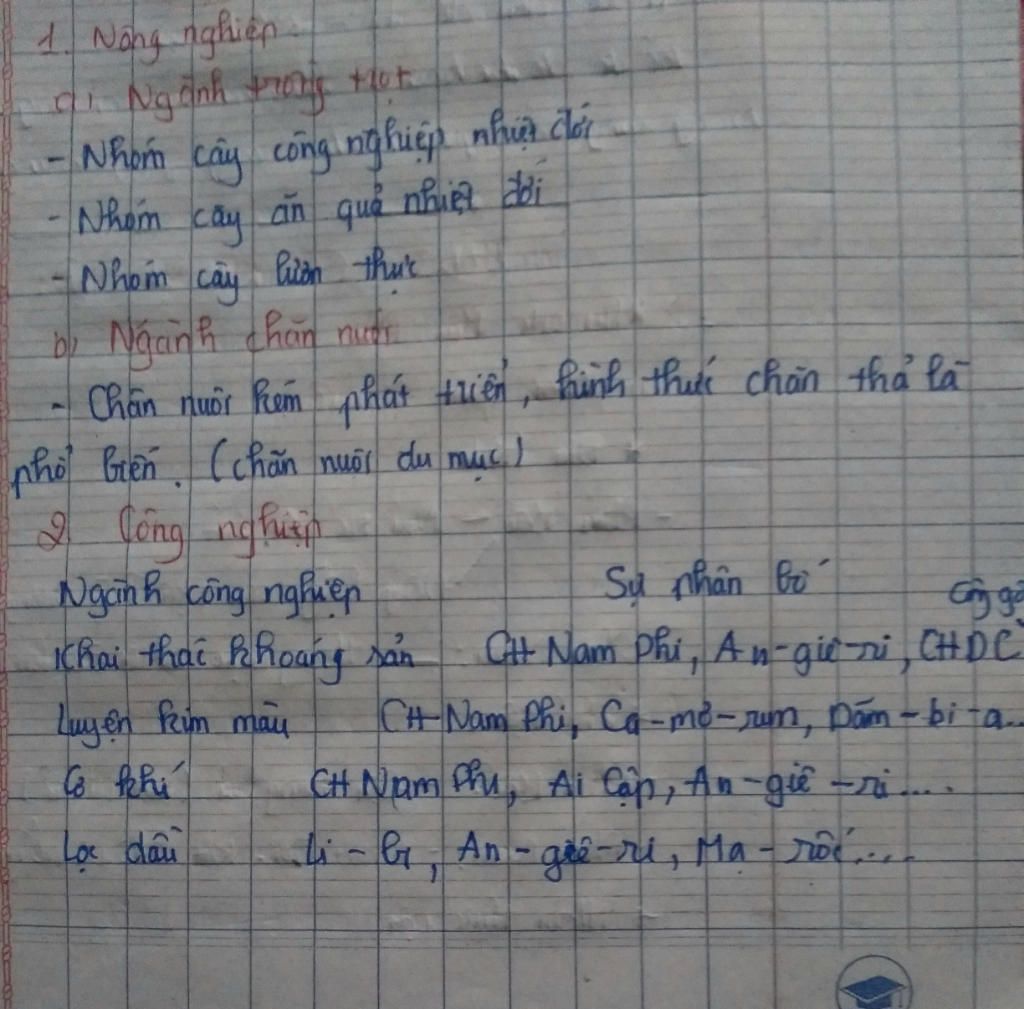 1. Nông nghiệp
a) Ngành trồng trọt
- Nhóm cây công nghiệp nhiệt đới
- Nhóm cây ăn quả nhiệt đới
- Nhóm cây lương thực
b) Ngành chăn nuôi
- Chăn nuôi kém phát triển, hình thức chăn thả là
phổ biến. (chăn nuôi du mục)
2 Công nghiệp
Ngành công nghiệp Sự phân bố
Khai thác khoáng sản CH Nam Phi, An-giê-ri, CHDC Công gô
Luyện kim màu CH Nam Phi, Ca-mơ-run, Dăm-bi-a...
Cơ khí CH Nam Phi, Ai Cập, An-giê-ri....
Lọc dầu Li-bi, An-giê-ri, Ma-rốc....